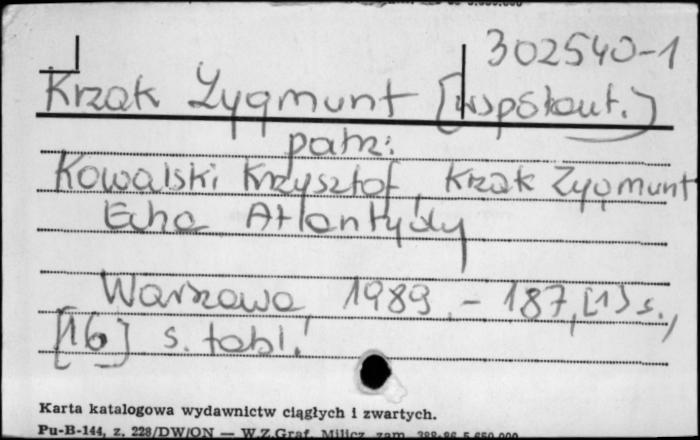 302540-1
Krzak Zygmunt [współaut.]
patrz:
Kowalski Krzysztof, Krzak Zygmunt
Echa Atlantydy
Warszawa, 1989. - 187, [1] s.,
[16] s. tabl.
Karta katalogowa wydawnictw ciągłych i zwartych.
Pu-B-144, z. 228/DW/ON — W.Z.Graf. Milicz, zam.